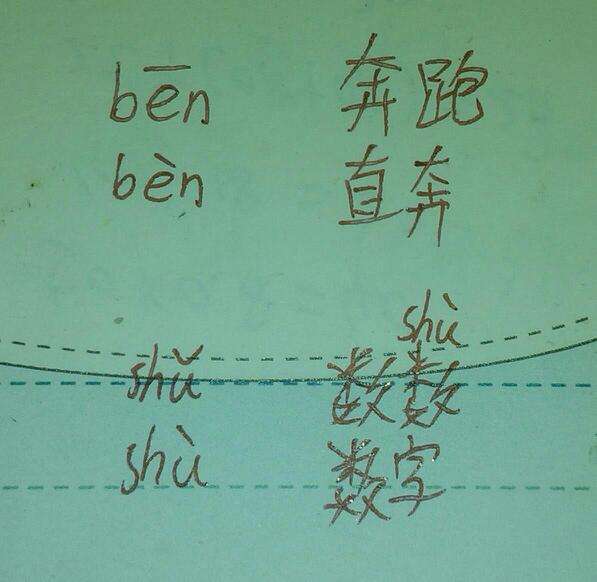 bēn 奔跑
bèn 直奔
shù
shǔ 数数
shù 数字